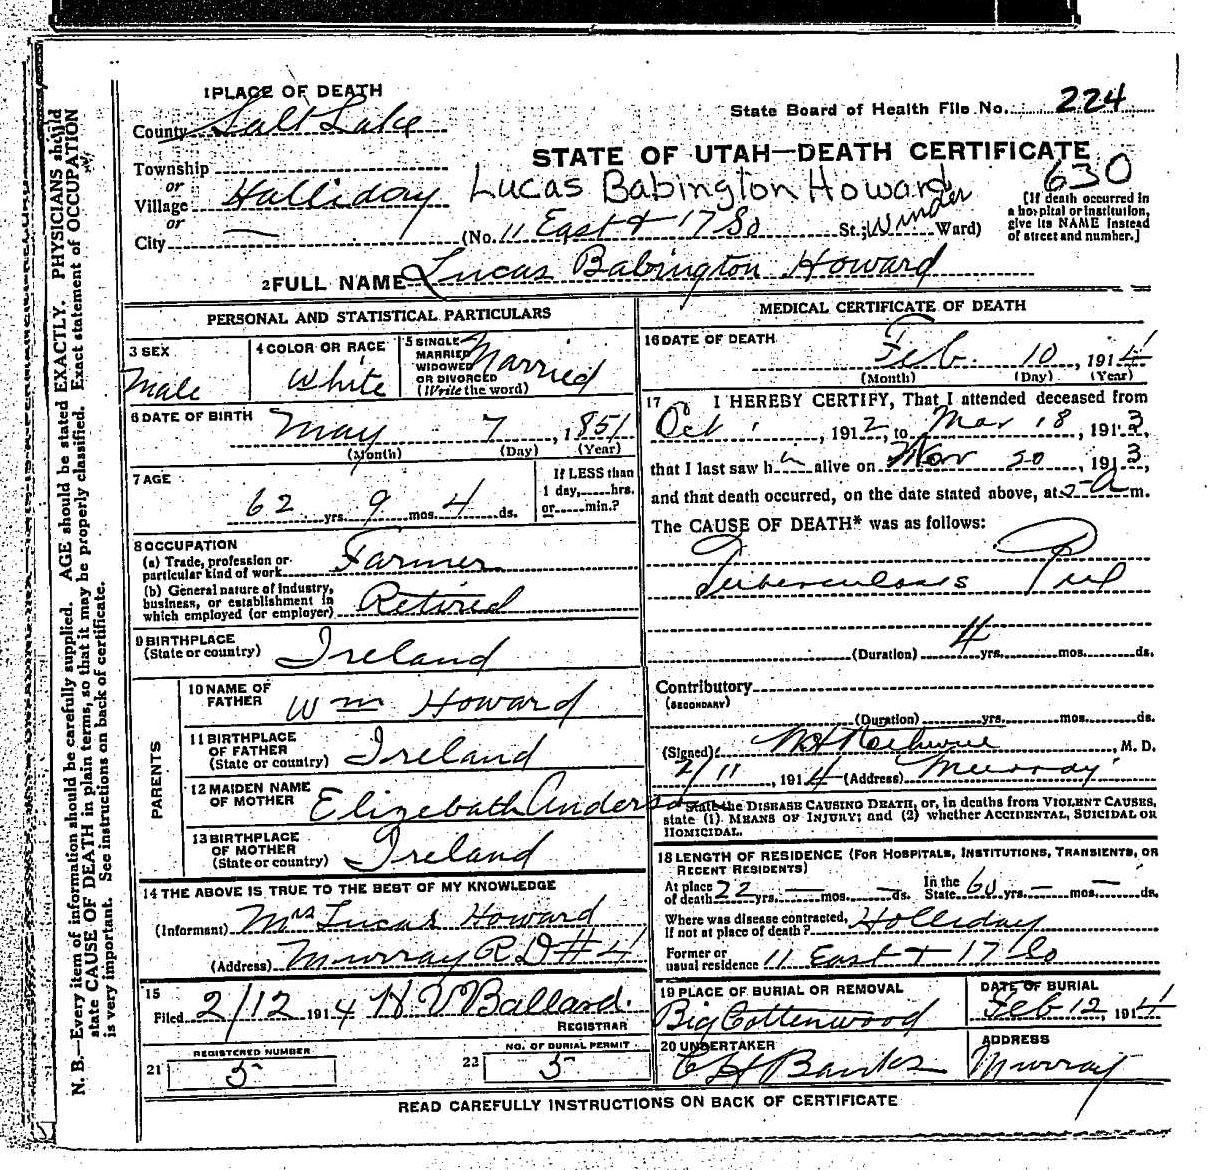 1 PLACE OF DEATH
County Salt Lake
State Board of Health File No. 224
STATE OF UTAH—DEATH CERTIFICATE
630
Township
or
Village Halliday
Lucas Babington Howard
or
City —
(No. 11 East + 17 So St.; Winder Ward)
[If death occurred in
a hospital or institution,
give its NAME instead
of street and number.]
2 FULL NAME Lucas Babington Howard
PERSONAL AND STATISTICAL PARTICULARS
3 SEX
Male
4 COLOR OR RACE
White
5 SINGLE
MARRIED
WIDOWED
OR DIVORCED
(Write the word)
Married
6 DATE OF BIRTH
May 7, 1851
(Month) (Day) (Year)
7 AGE
62 yrs. 9 mos. 4 ds.
If LESS than
1 day,.....hrs.
or.....min.?
8 OCCUPATION
(a) Trade, profession or
particular kind of work Farmer
(b) General nature of industry,
business, or establishment in
which employed (or employer) Retired
9 BIRTHPLACE
(State or country) Ireland
PARENTS
10 NAME OF
FATHER Wm Howard
11 BIRTHPLACE
OF FATHER
(State or country) Ireland
12 MAIDEN NAME
OF MOTHER Elizebath Anderson
13 BIRTHPLACE
OF MOTHER
(State or country) Ireland
14 THE ABOVE IS TRUE TO THE BEST OF MY KNOWLEDGE
(Informant) Mrs Lucas Howard
(Address) Murray R.D #4
15
Filed 2/12 1914 H V Ballard.
REGISTRAR
21 REGISTERED NUMBER
5
22 NO. OF BURIAL PERMIT
5
MEDICAL CERTIFICATE OF DEATH
16 DATE OF DEATH
Feb. 10, 1914
(Month) (Day) (Year)
17 I HEREBY CERTIFY, That I attended deceased from
Oct, 1912, to Mar 18, 1913,
that I last saw him alive on Mar, 1913,
and that death occurred, on the date stated above, at 5 A m.
The CAUSE OF DEATH* was as follows:
Tuberculosis Pul
(Duration) 4 yrs. mos. ds.
Contributory
(SECONDARY)
(Duration) yrs. mos. ds.
(Signed), M. D.
2/11, 1914 (Address) Murray
*State the DISEASE CAUSING DEATH, or, in deaths from VIOLENT CAUSES,
state (1) MEANS OF INJURY; and (2) whether ACCIDENTAL, SUICIDAL OR
HOMICIDAL.
18 LENGTH OF RESIDENCE (FOR HOSPITALS, INSTITUTIONS, TRANSIENTS, OR
RECENT RESIDENTS)
At place
of death 22 yrs. — mos. — ds. In the
State 60 yrs. — mos. — ds.
Where was disease contracted,
If not at place of death? Holliday
Former or
usual residence 11 East + 17 So
19 PLACE OF BURIAL OR REMOVAL
Big Cottenwood
DATE OF BURIAL
Feb 12, 1914
20 UNDERTAKER
C H Banks
ADDRESS
Murray
READ CAREFULLY INSTRUCTIONS ON BACK OF CERTIFICATE
N. B.—Every item of information should be carefully supplied. AGE should be stated EXACTLY. PHYSICIANS should
state CAUSE OF DEATH in plain terms, so that it may be properly classified. Exact statement of OCCUPATION
is very important. See instructions on back of certificate.